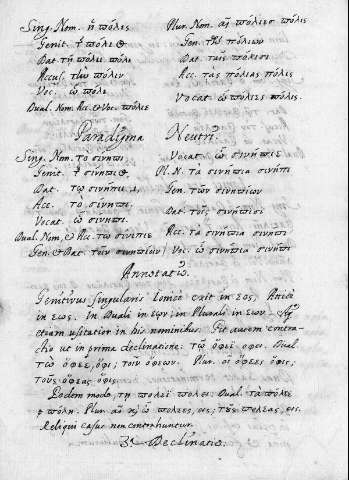 Sing. Nom. ἡ πόλις Plur. Nom. αἱ πόλιες πόλις
Genit. πόλε Gen. τῶν πολίων
Dat. τῇ πόλει πόλι Dat. ταῖς πόλισι
Accus. τὴν πόλιν Acc. τὰς πόλιας πόλις
Voc. ὦ πόλι Vocat. ὦ πόλιες πόλις.
Dual. Nom. Acc. & Voc. πόλιε
Paradigma Neutri.
Sing. Nom. τὸ σίνηπι Vocat. ὦ σινήπιε
Genit. Pl. N. τὰ σινήπια σινήπι
Dat. τῷ σινήπι Gen. τῶν σινηπίων
Acc. τὸ σίνηπι. Dat. τοῖς σινήπισι
Vocat. ὦ σίνηπι. Acc. τὰ σινήπια σινήπι
Dual. Nom. & Acc. τὼ σινήπιε
Gen. & Dat. τοῖν σινηπίοιν Voc. ὦ σινήπια σινήπι
Annotatio.
Genitivus singularis Ionice exit in εος, Attice
in εως. In Duali in εῳν, in Plurali in εων.
etiam usitatior in his nominibus. Fit autem contra-
ctio ut in prima declinatione: τῷ ὄφεϊ ὄφει. Dual.
τὼ ὄφεε, ὄφη; τοῖν ὀφέων. Plur. οἱ ὄφεες ὄφεις,
τοὺς ὄφεας ὄφεις.
Eodem modo, τῇ πόλεϊ πόλει. Dual. τὰ πόλεε
πόλη. Plur. αἱ ὦ πόλεες, εις, τὰς πόλεας, εις.
Reliqui casus non contrahuntur.
3ᵃ Declinatio.